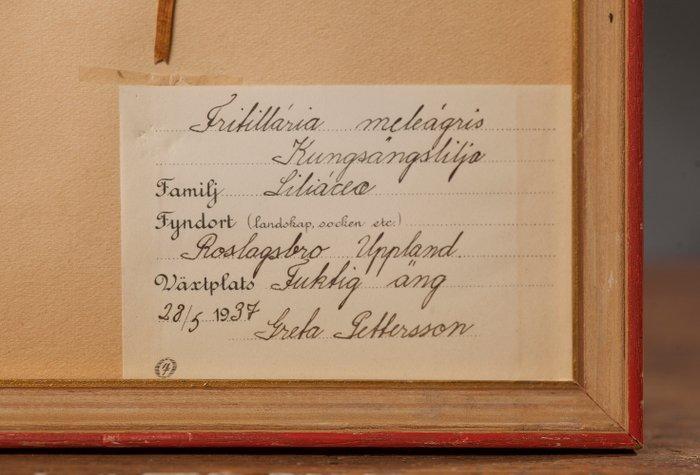 Fritillária meleágris
Kungsängslilja
Familj Liliáceæ
Fyndort (landskap, socken etc.)
Roslagsbro Uppland
Växtplats Fuktig äng
28/5 1937
Greta Pettersson
4